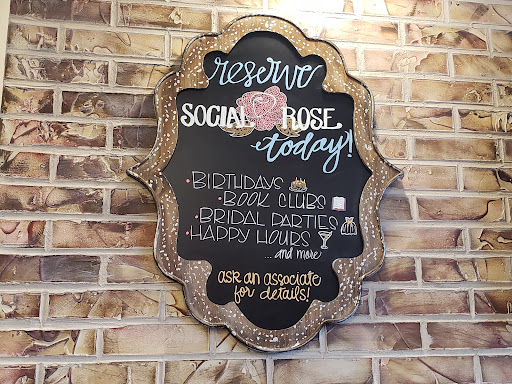 reserve
SOCIAL ROSE
today!
• BIRTHDAYS
• BOOK CLUBS
• BRIDAL PARTIES
• HAPPY HOURS
...and more
ask an associate
for details!